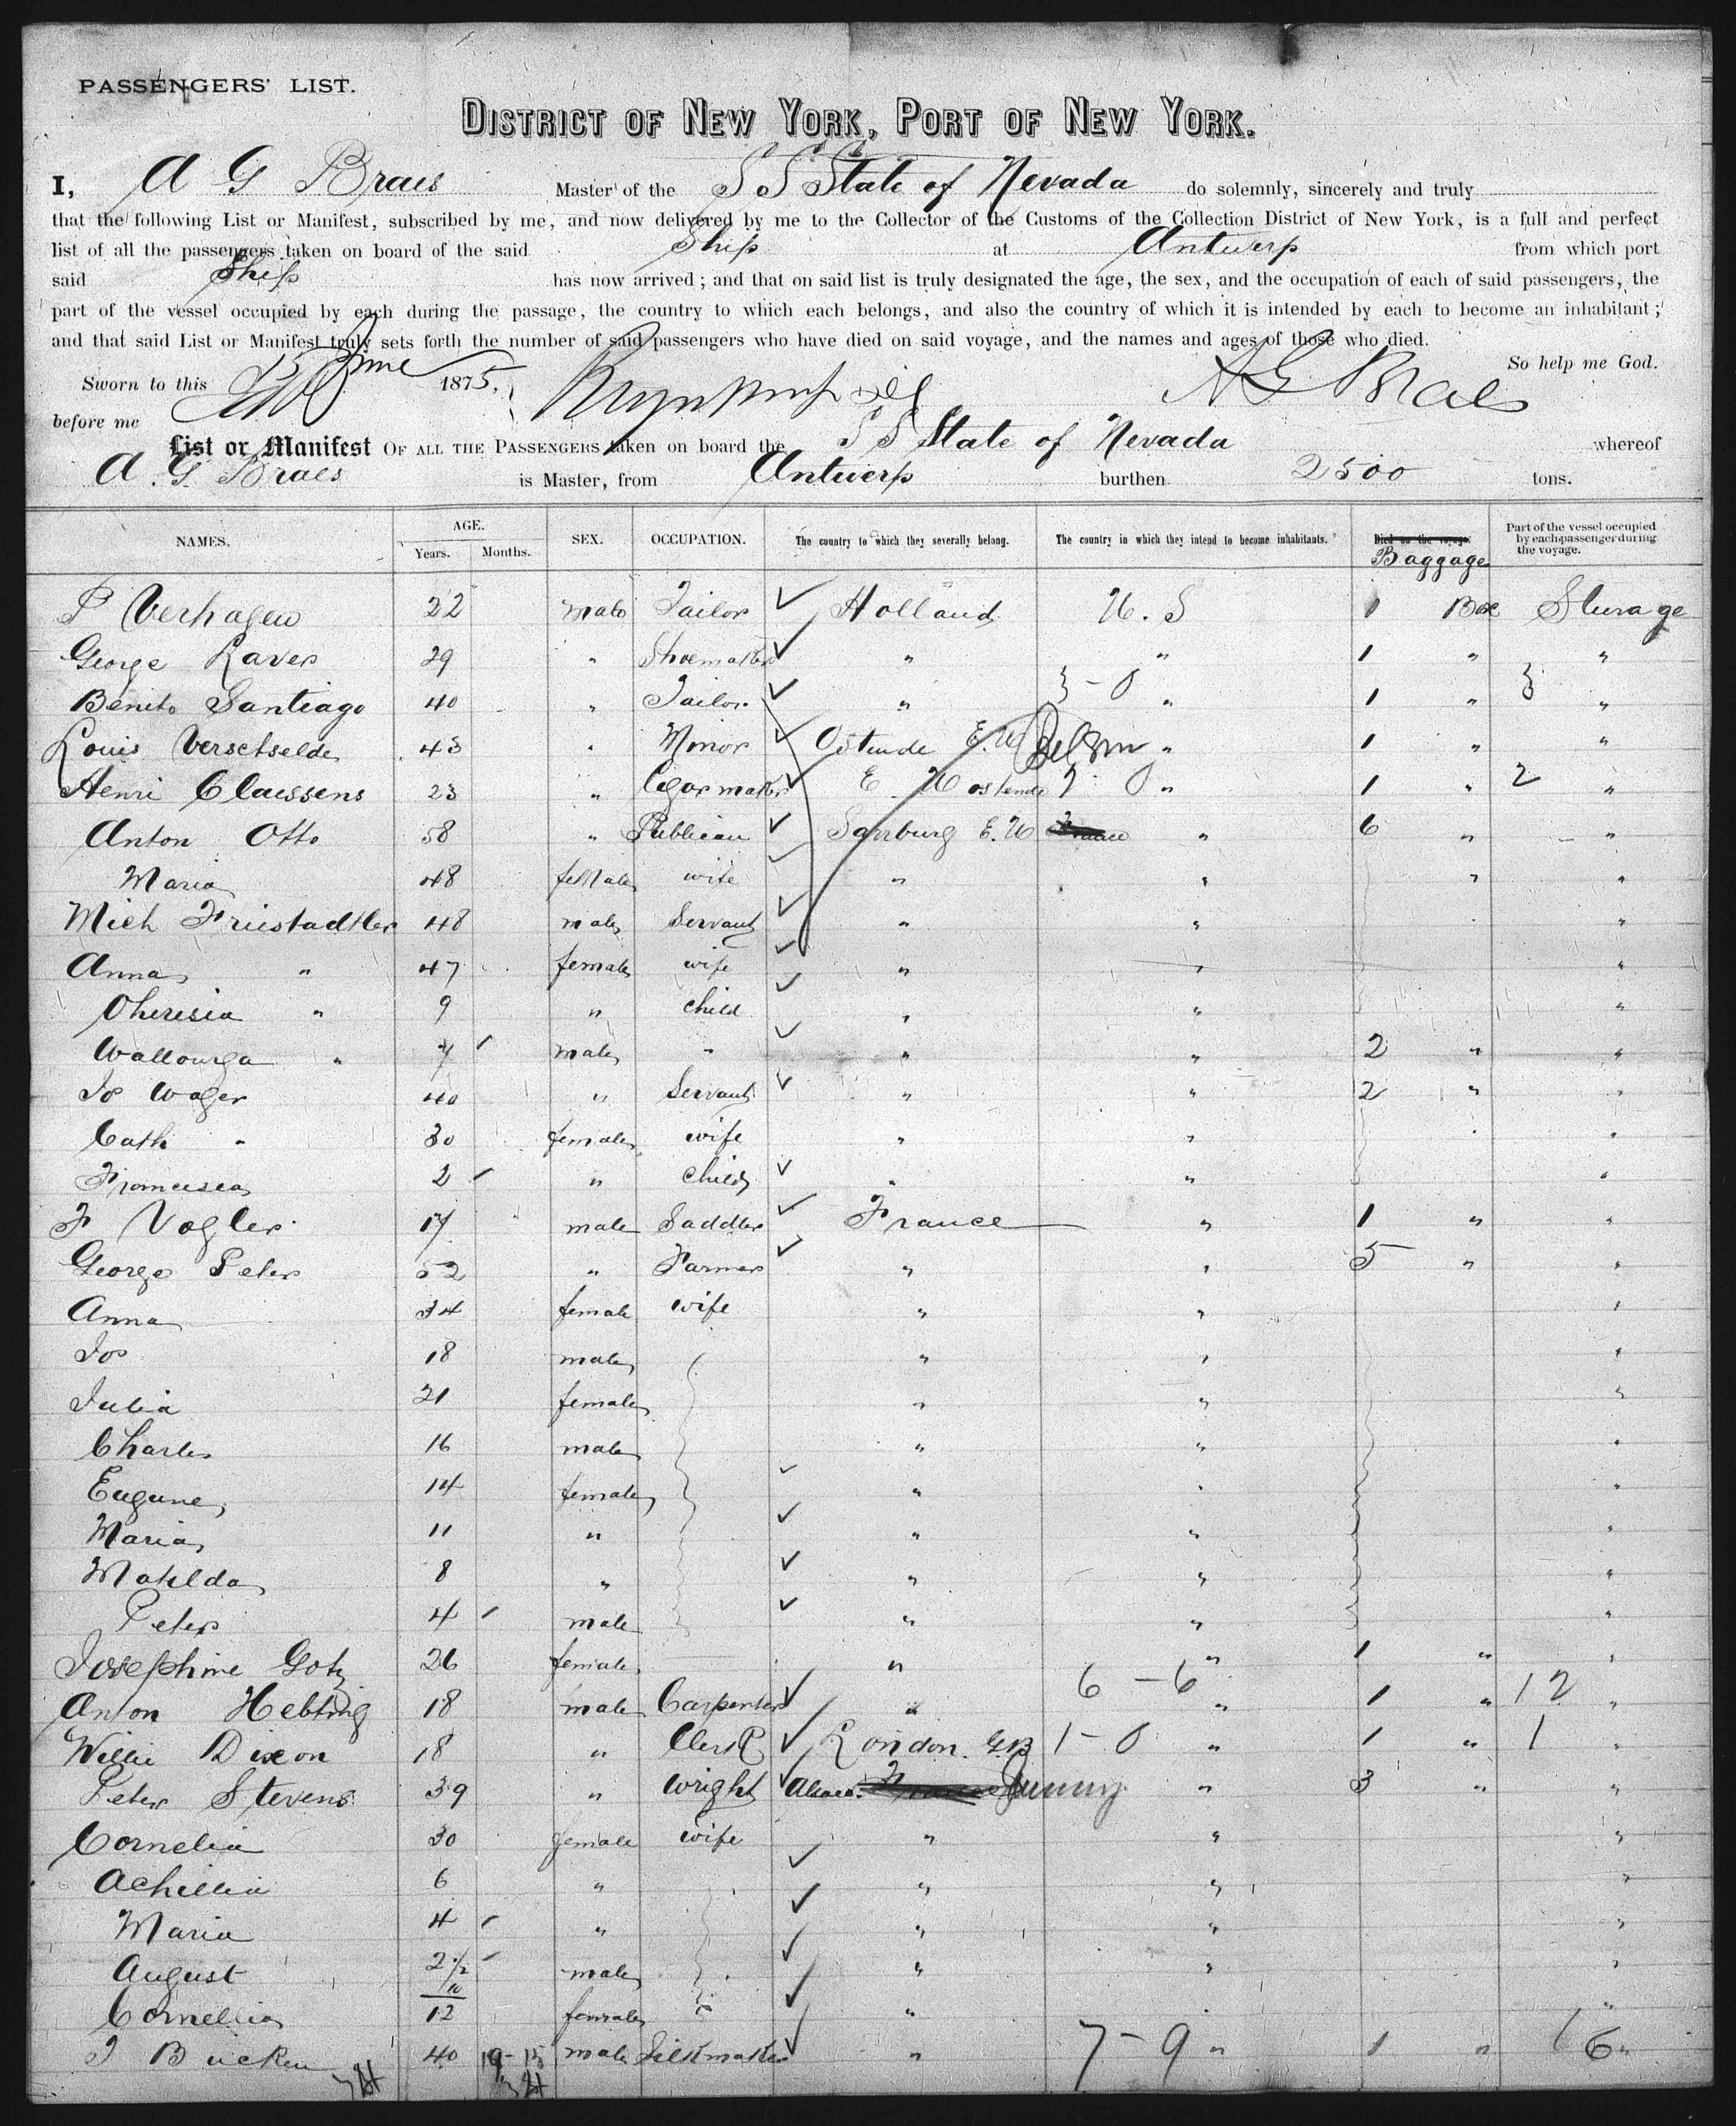 PASSENGERS' LIST.
DISTRICT OF NEW YORK, PORT OF NEW YORK.
I, A G Braes Master of the S S State of Nevada do solemnly, sincerely and truly
that the following List or Manifest, subscribed by me, and now delivered by me to the Collector of the Customs of the Collection District of New York, is a full and perfect
list of all the passengers taken on board of the said Ship at Antwerp from which port
said Ship has now arrived; and that on said list is truly designated the age, the sex, and the occupation of each of said passengers, the
part of the vessel occupied by each during the passage, the country to which each belongs, and also the country of which it is intended by each to become an inhabitant;
and that said List or Manifest truly sets forth the number of said passengers who have died on said voyage, and the names and ages of those who died.
So help me God.
Sworn to this 15 June 1875, A G Braes
before me
List or Manifest OF ALL THE PASSENGERS taken on board the S S State of Nevada whereof
A. G. Braes is Master, from Antwerp burthen 2500 tons.
NAMES. AGE. Years. Months. SEX. OCCUPATION. The country to which they severally belong. The country in which they intend to become inhabitants. Died on the voyage. Baggage Part of the vessel occupied by each passenger during the voyage.
P Verhagen 22 male Tailor Holland U. S 1 Box Sturage
George Raver 29 " Shoemaker " " 1 " "
Benito Santiago 40 " Tailor " 3 - 0 " 1 " 3 "
Louis Verschelde 43 " Minor Ostende E. U Belgm " 1 " "
Henri Claessens 23 " Cigarmaker E. U Ostende 2 0 " 1 " 2 "
Anton Otto 58 " Publican Sarrburg E. U France " 6 " "
Maria 48 female wife " " " "
Mich Friestadtler 48 male Servant " " "
Anna " 47 female wife " " "
Theresia " 9 " child " " "
Wallourga " 7 male " " " 2 " "
Jos Wager 40 " Servant " " 2 " "
Cath " 30 female wife " " "
Francisca 2 " child " " "
F Vogler 17 male Saddler France " 1 " "
George Peter 52 " Farmer " " 5 " "
Anna 34 female wife " " "
Jos 18 male " " "
Julia 21 female " " "
Charles 16 male " " "
Eugune 14 female " " "
Maria 11 " " " "
Matilda 8 " " " "
Peter 4 male " " "
Josephine Gotz 26 female " " 1 " "
Anton Hebting 18 male Carpenter " 6 - 6 " 1 " 12 "
Willie Dixon 18 " Clerk London. G.B 1 - 0 " 1 " 1 "
Peter Stevens 39 " Wright Alsace. France Germny " 3 " "
Cornelia 30 female wife " " "
Achillia 6 " " " "
Maria 4 " " " "
August 2 1/2 male " " "
Cornellia 10/12 female " " "
J Bucken 40 male Silkmaker " 7 - 9 " 1 " 16 "